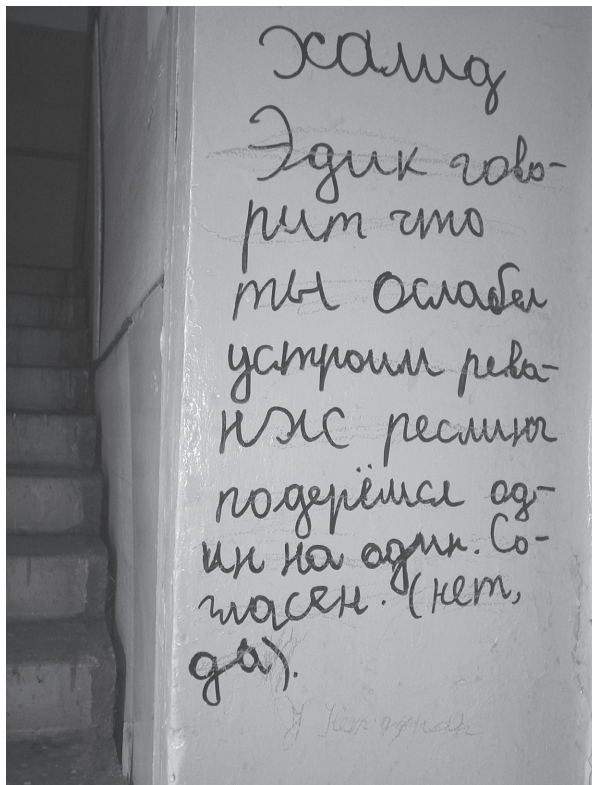 Халид
Эдик гово-
рит что
ты ослабел
устроим рева-
нжс реслинг
подерёмся од-
ин на один. Со-
гласен. (нет,
да).